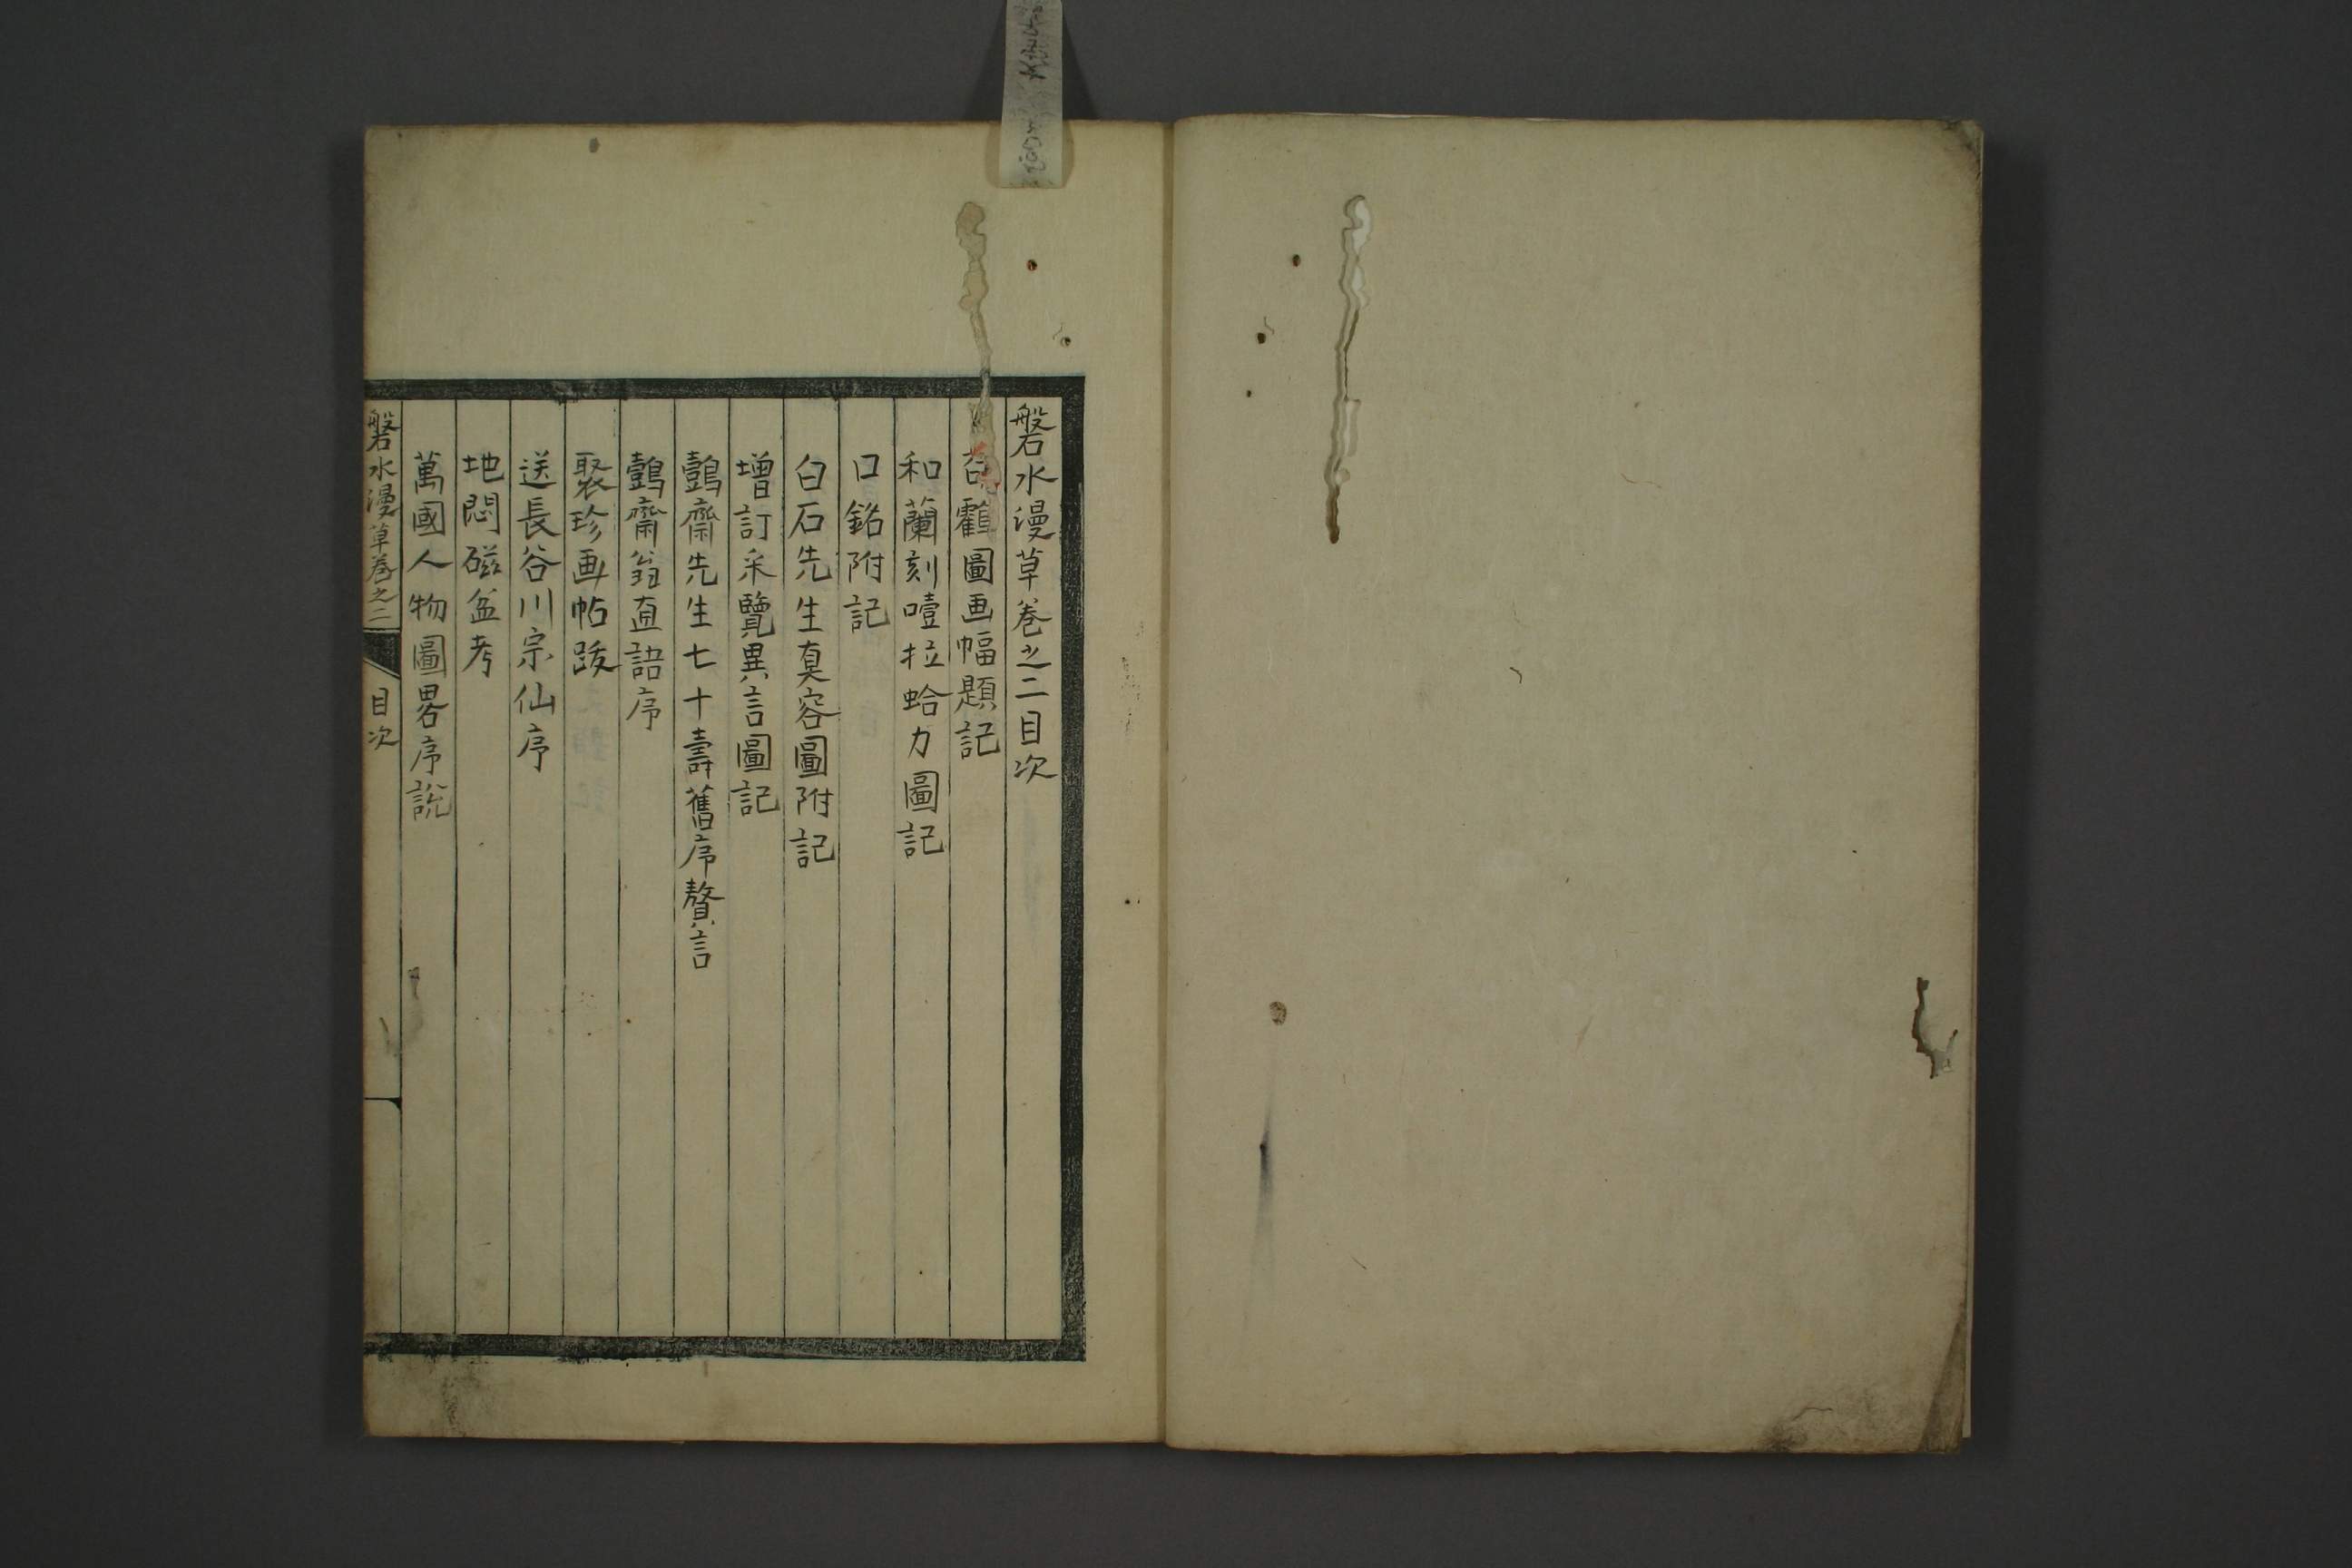 磐水漫草卷之二目次
圖画幅題記
和蘭刻噎拉蛤力圖記
口銘附記
白石先生真容圖附記
增訂采覽異言圖記
鷧齋先生七十壽舊序贅言
鷧齋翁直語序
聚珍画帖跋
送長谷川宗仙序
地悶磁盆考
萬國人物圖畧序說
磐水漫草卷之二
目次